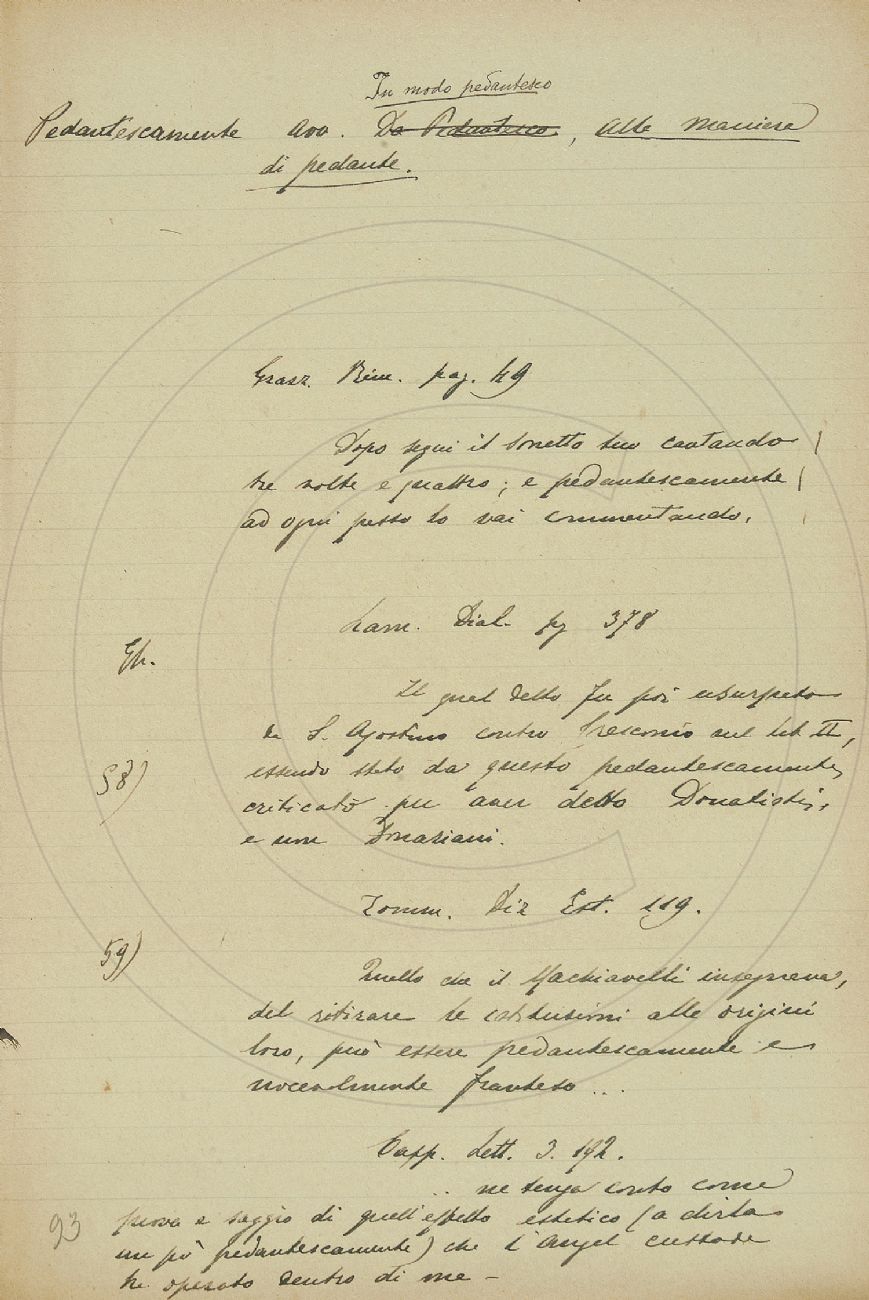 In modo pedantesco
Pedantescamente avv. Da Pedantesco, alla maniera
di pedante.
Grazz. Rim. pag. 49
Dopo segui il sonetto tuo cantando
tre volte e quattro; e pedantescamente
ad ogni passo lo vai commentando.
Lam. Dial. pg 378
Gh.
Il qual detto fu poi usurpato
da S. Agostino contro Cresconio nel lib. II,
58)
essendo stato da questo pedantescamente
criticato per aver detto Donatisti,
e non Donaziani.
Tomm. Diz Est. 119.
59)
Quello che il Machiavelli insegnava,
del ritirare le istituzioni alle origini
loro, può essere pedantescamente e
nocevolmente franteso ...
Capp. Lett. 3. 192.
... ne tenga conto come
93
prova e saggio di quell'effetto estetico (a dirla
un po' pedantescamente) che l'Angel custode
ha operato dentro di me -